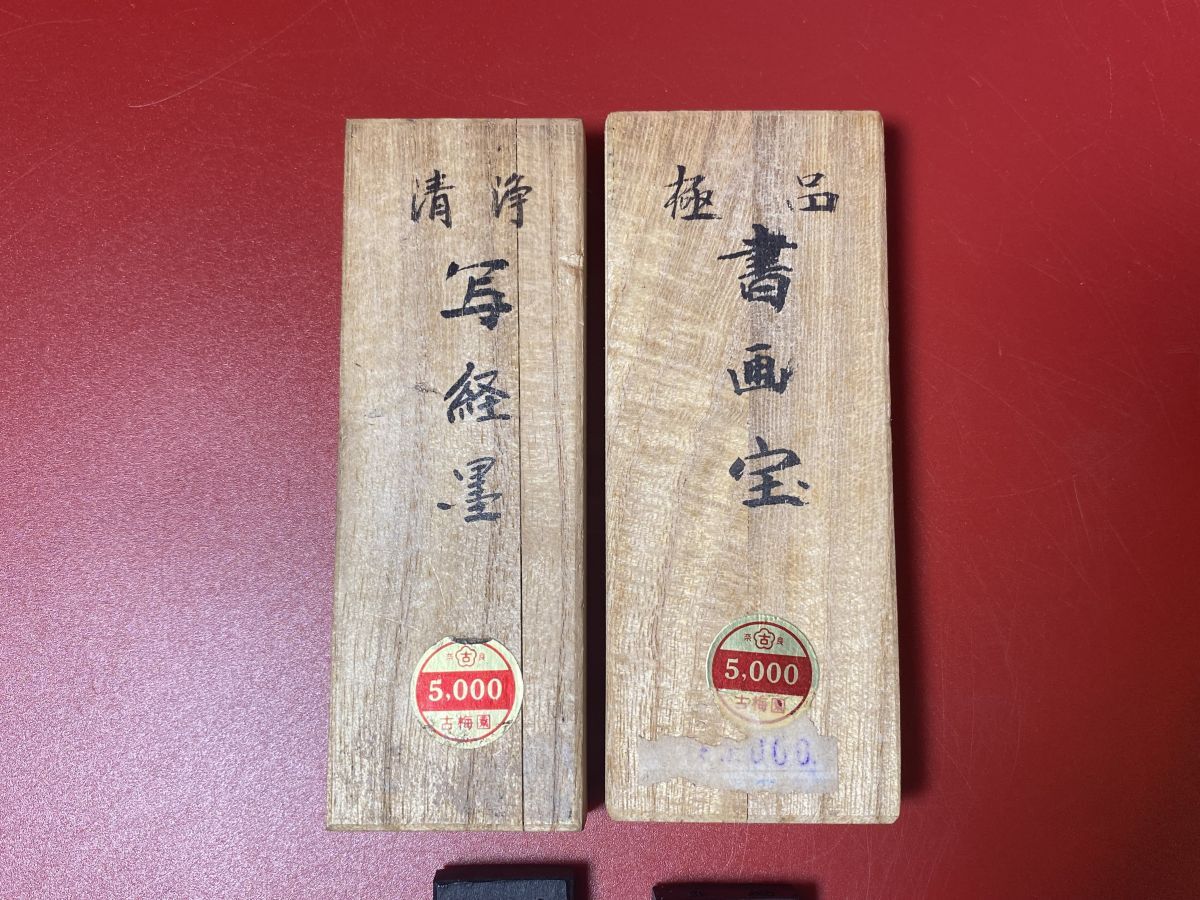 清浄
写経墨
奈古良
5,000
古梅園
極品
書画宝
奈古良
5,000
古梅園